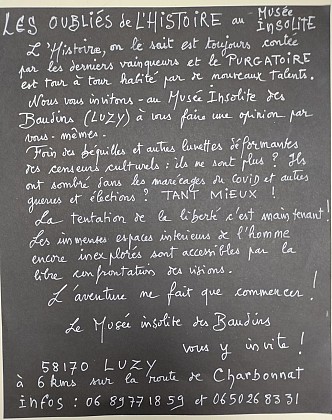 LES OUBLIÉS de L'HISTOIRE au Musée INSOLITE
L'Histoire, on le sait est toujours contée
par les derniers vainqueurs et le PURGATOIRE
est tour à tour habité par de nouveaux talents.
Nous vous invitons - au Musée Insolite des
Baudins (LUZY) à vous faire une opinion par
vous-mêmes.
Foin des béquilles et autres lunettes déformantes
des censeurs culturels : ils ne sont plus ? Ils
ont sombré dans les marécages du COVID et autres
guerres et élections ? TANT MIEUX !
La tentation de la liberté c'est maintenant !
Les immenses espaces intérieurs de l'homme
encore inexplorés sont accessibles par la
libre confrontation des visions.
L'aventure ne fait que commencer !
Le Musée insolite des Baudins
vous y invite !
58170 LUZY
à 6 kms sur la route de Charbonnat
infos : 06 89 77 18 59 et 06 50 26 83 31